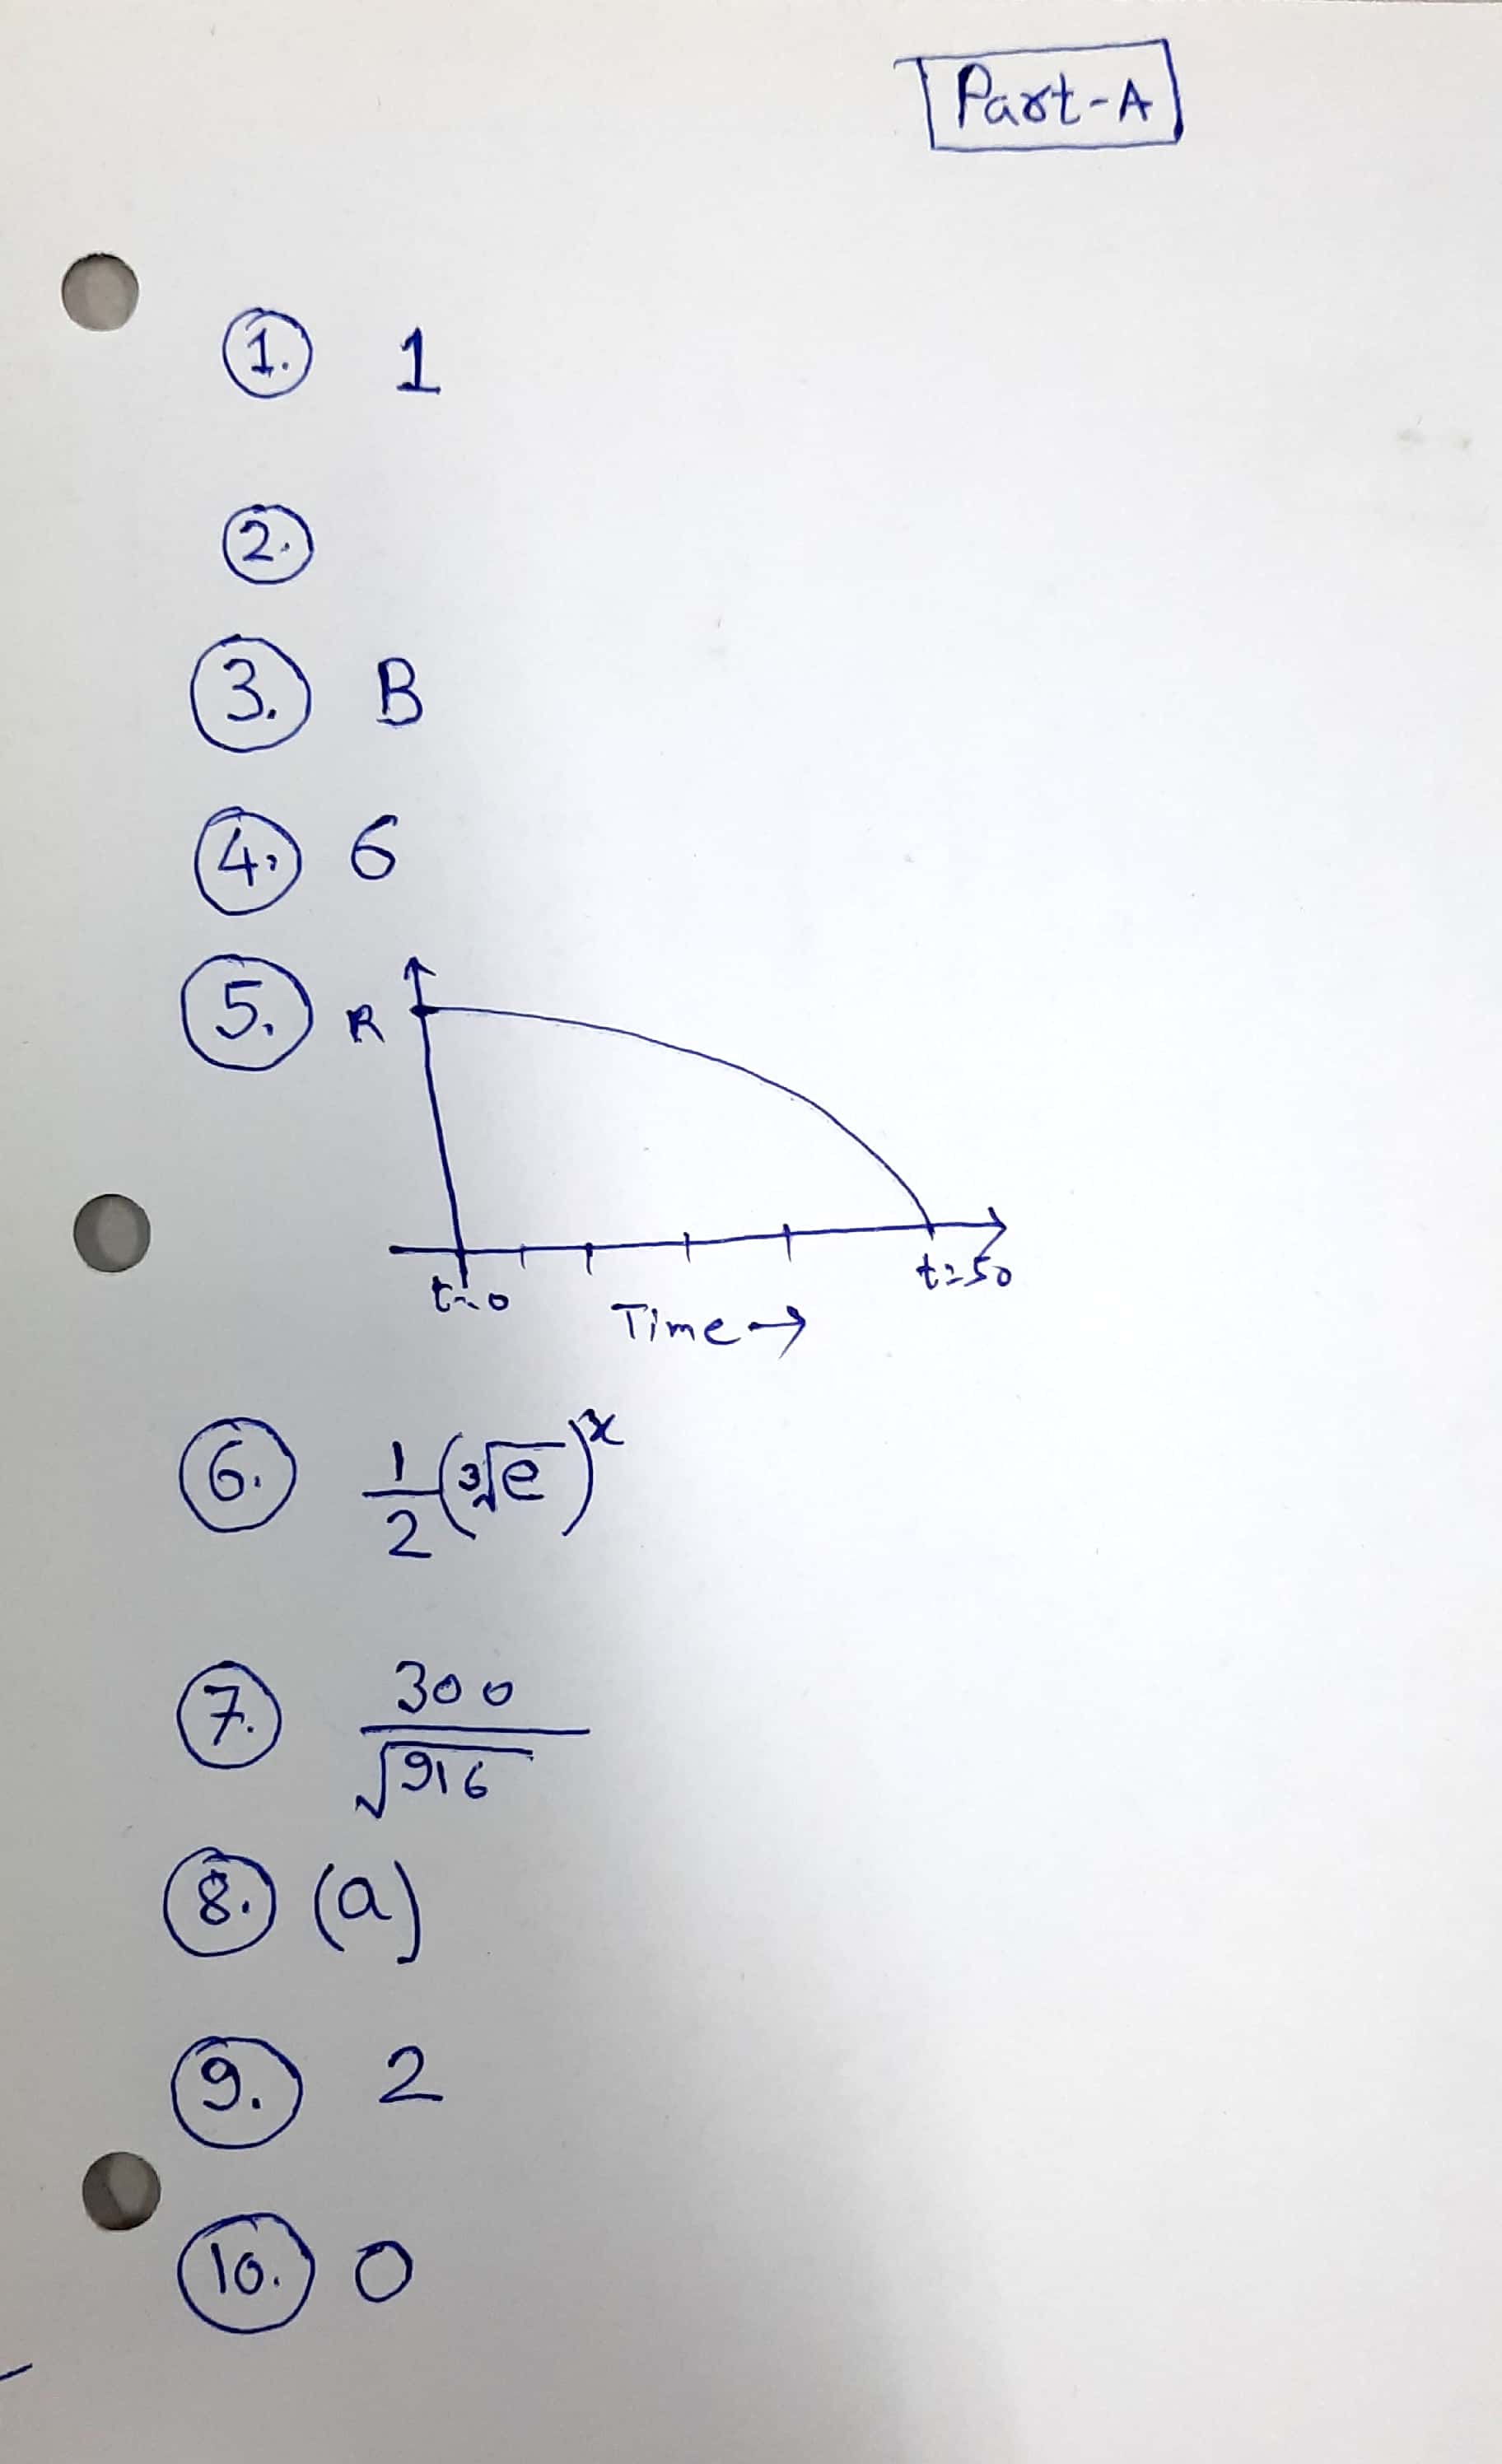 Part-A
1. 1
2.
3. B
4. 6
5. R
t=0
t=50
Time →
6. 1/2 (∛e)^x
7. 300/√916
8. (a)
9. 2
10. 0